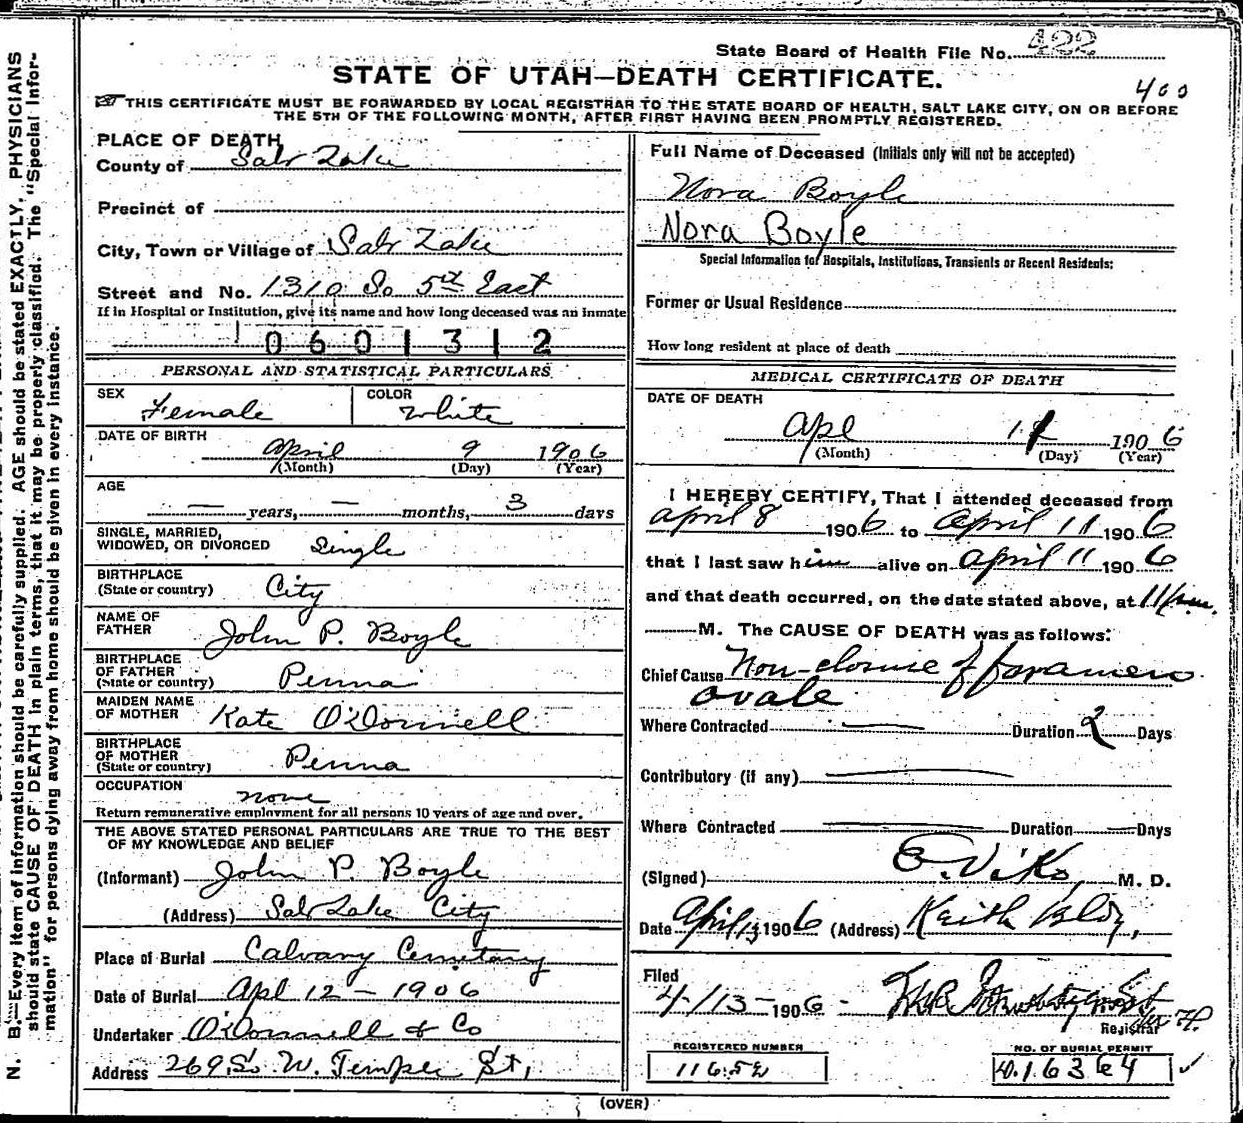 State Board of Health File No. 422
STATE OF UTAH—DEATH CERTIFICATE.
400
THIS CERTIFICATE MUST BE FORWARDED BY LOCAL REGISTRAR TO THE STATE BOARD OF HEALTH, SALT LAKE CITY, ON OR BEFORE
THE 5TH OF THE FOLLOWING MONTH, AFTER FIRST HAVING BEEN PROMPTLY REGISTERED.
PLACE OF DEATH
County of Salt Lake
Precinct of
City, Town or Village of Salt Lake
Street and No. 1310 So 5th East
If in Hospital or Institution, give its name and how long deceased was an inmate
0601312
PERSONAL AND STATISTICAL PARTICULARS
SEX Female COLOR White
DATE OF BIRTH April 9 1906
(Month) (Day) (Year)
AGE — years, — months, 3 days
SINGLE, MARRIED,
WIDOWED, OR DIVORCED Single
BIRTHPLACE
(State or country) City
NAME OF
FATHER John P. Boyle
BIRTHPLACE
OF FATHER
(State or country) Penna
MAIDEN NAME
OF MOTHER Kate O'Donnell
BIRTHPLACE
OF MOTHER
(State or country) Penna
OCCUPATION none
Return remunerative employment for all persons 10 years of age and over.
THE ABOVE STATED PERSONAL PARTICULARS ARE TRUE TO THE BEST
OF MY KNOWLEDGE AND BELIEF
(Informant) John P. Boyle
(Address) Salt Lake City
Place of Burial Calvary Cemetary
Date of Burial Apl 12 - 1906
Undertaker O'Donnell & Co
Address 269 So W. Temple St,
Full Name of Deceased (Initials only will not be accepted)
Nora Boyle
Nora Boyle
Special Information for Hospitals, Institutions, Transients or Recent Residents:
Former or Usual Residence
How long resident at place of death
MEDICAL CERTIFICATE OF DEATH
DATE OF DEATH
Apl 1906
(Month) (Day) (Year)
I HEREBY CERTIFY, That I attended deceased from
April 8 1906 to April 11 1906
that I last saw him alive on April 11 1906
and that death occurred, on the date stated above, at 11
M. The CAUSE OF DEATH was as follows:
Chief Cause Non-closure of foramen
ovale
Where Contracted — Duration 2 Days
Contributory (if any) —
Where Contracted — Duration — Days
(Signed) E. Viko, M. D.
Date April 13 1906 (Address) Keith Bldg,
Filed
4/13-1906 -
Registrar
REGISTERED NUMBER
NO. OF BURIAL PERMIT
(OVER)
N. B.—Every item of information should be carefully supplied. AGE should be stated EXACTLY. PHYSICIANS
should state CAUSE OF DEATH in plain terms, that it may be properly classified. The "Special Infor-
mation" for persons dying away from home should be given in every instance.